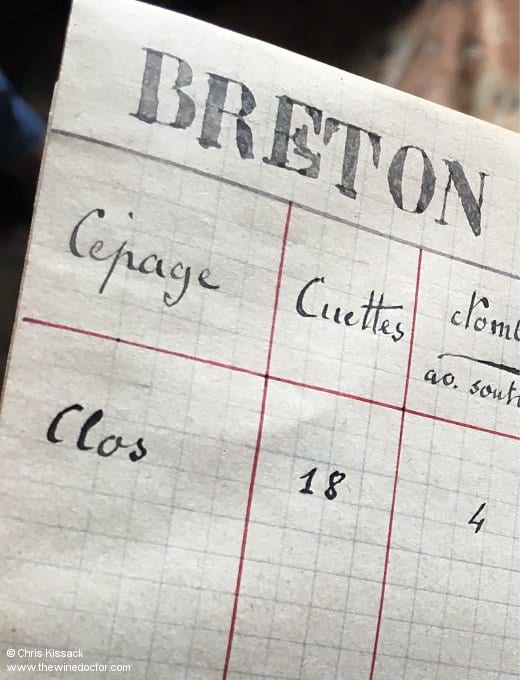 BRETON
Cépage
Cuettes
ao.
Clos
18
4
© Chris Kissack
www.thewinedoctor.com